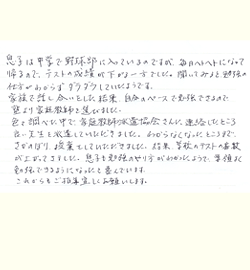 息子は中学で野球部に入っているのですが、毎日ヘトヘトになって
帰るので、テストの成績が下がる一方でした。聞いてみると勉強の
仕方がわからずダラダラしていたようです。
家族で話し合いをした結果、自分のペースで勉強できるので
塾より家庭教師を選びました。
色々調べた中で、家庭教師派遣協会さんに連絡したところ
良い先生を派遣していただきました。わからなくなったところまで、
さかのぼり、授業をしていただきました。結果、学校のテストの点数
が上がってきました。息子も勉強のやり方がわかったようで、要領よく
勉強できるようになったと喜んでいます。
これからもご指導宜しくお願いします。